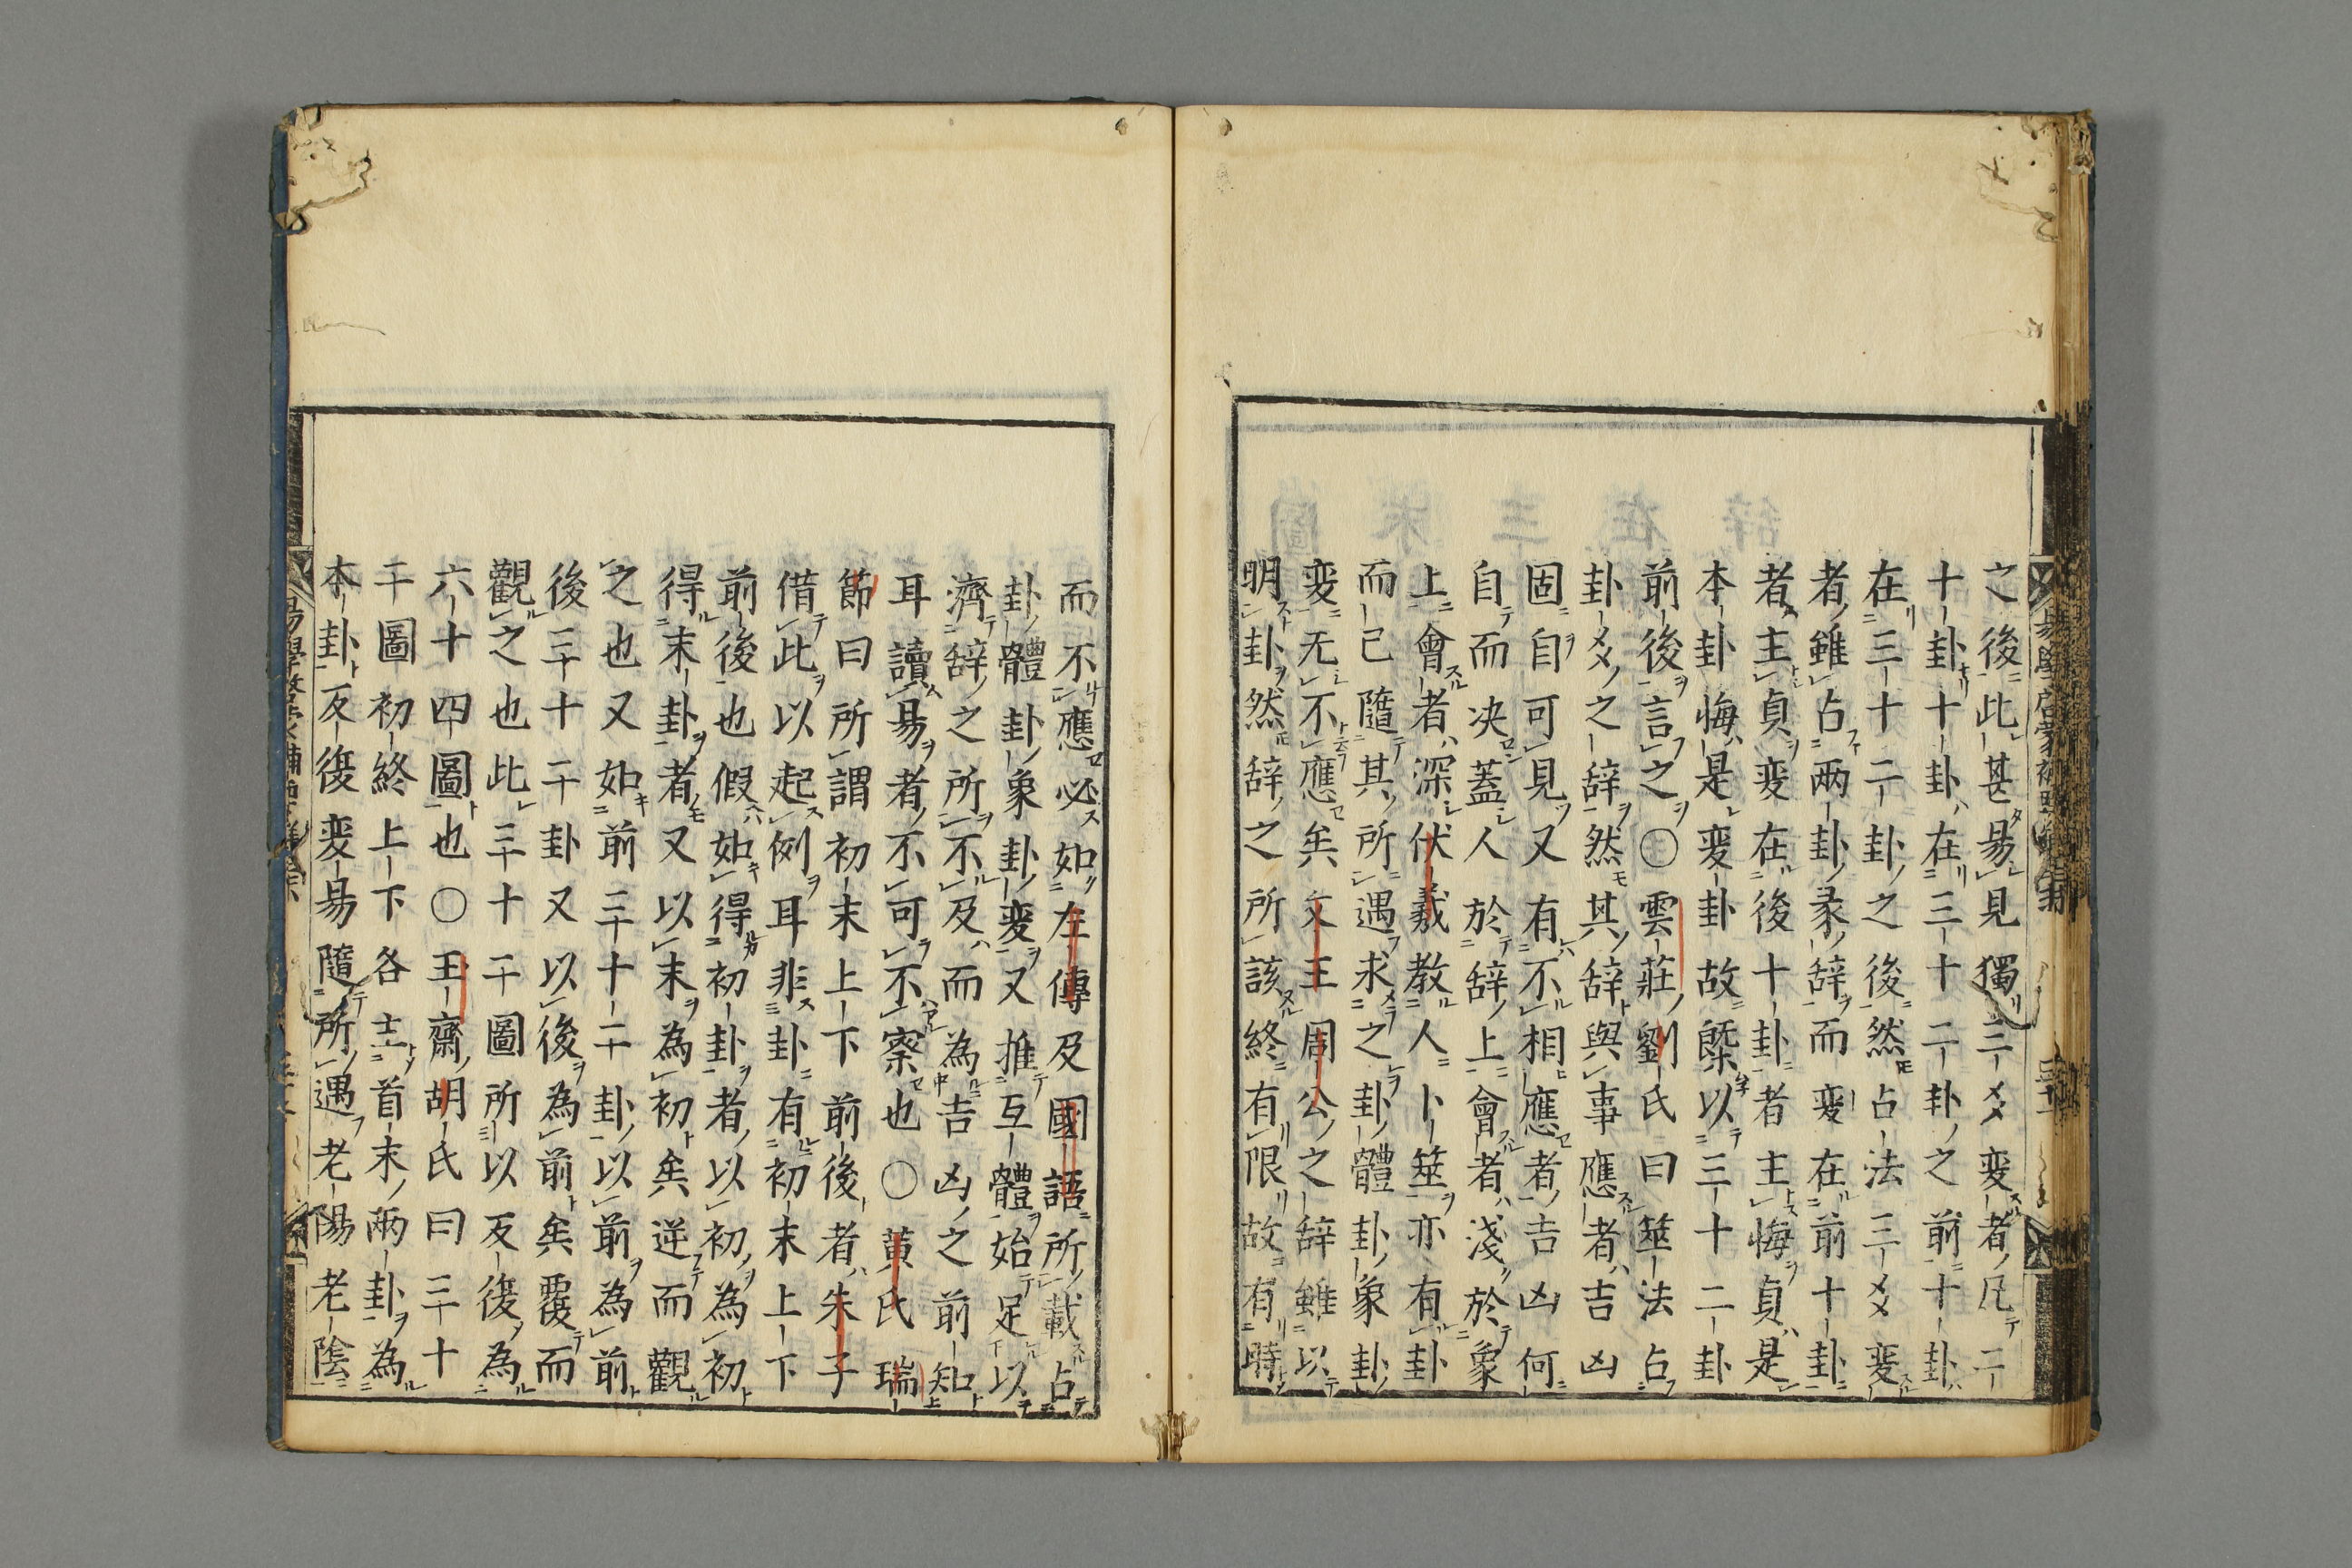 之後此甚易見獨三爻変者凡二
十卦十卦在三十二卦之前十卦
在三十二卦之後然占法三爻変
者雖占両卦彖辞而変在前十卦
者主貞変在後十卦者主悔貞是
本卦悔是変卦故槩以三十二卦
前後言之〇雲莊劉氏曰筮法占
卦爻之辞然其辞與事應者吉凶
固自可見又有不相應者吉凶何
自而决蓋人於辞上會者淺於象
上會者深伏羲教人卜筮亦有卦
而已隨其所遇求之卦體卦象卦
変无不應矣文王周公之辞雖以
明卦然辞之所該終有限故有時
而不應必如左傳及國語所載占
卦體卦象卦変又推互體始足以
濟辞之所不及而為吉凶之前知
耳讀易者不可不察也〇黄氏瑞
節曰所謂初末上下前後者朱子
借此以起例耳非卦有初末上下
前後也假如得初卦者以初為初
得末卦者又以末為初矣逆而觀
之也又如前三十二卦以前為前
後三十二卦又以後為前矣覆而
觀之也此三十二圖所以反復為
六十四圖也〇王齋胡氏曰三十
二圖初終上下各主首末両卦為
本卦反復変易隨所遇老陽老陰